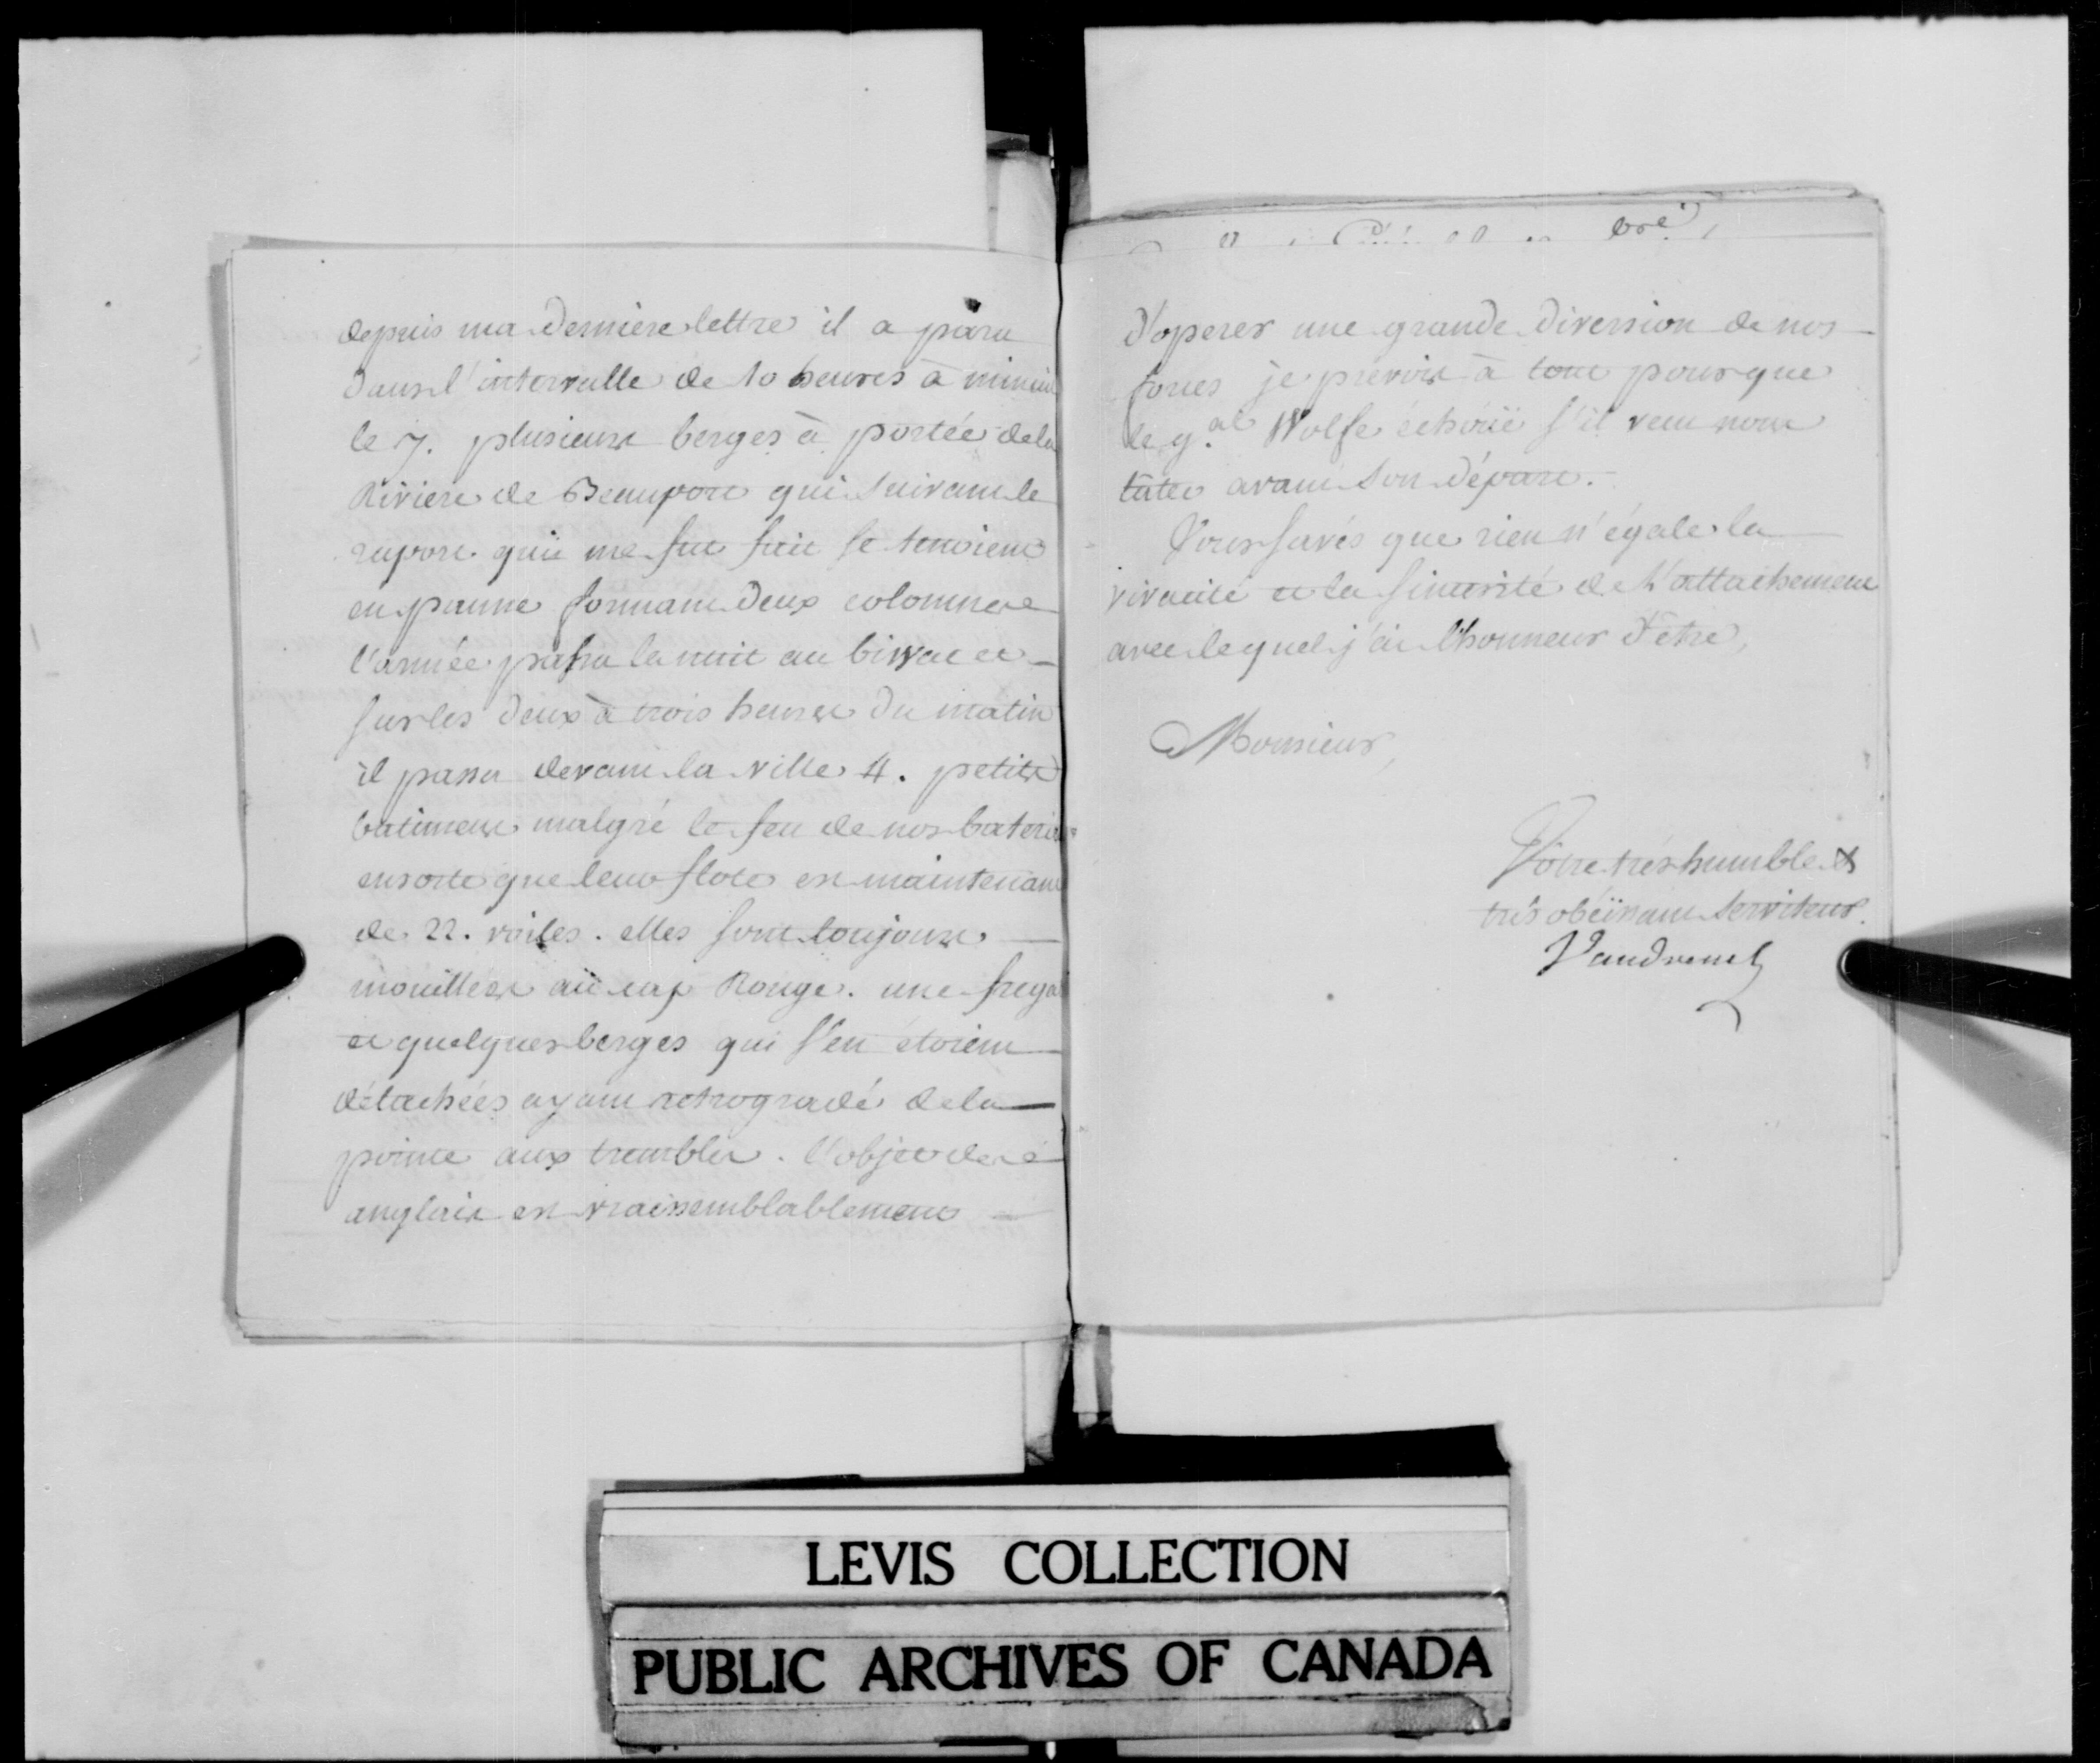 depuis ma derniere lettre il a paru
dans l'intervalle de 10 heures à minuit
le 7. plusieurs berges à portée de la
Riviere de Beauport qui suivant le
raport qui me fut fait se tenoient
en panne formant deux colomnes
l'armée passa la nuit au bivvac et
sur les deux à trois heures du matin
il passa devant la ville 4. petits
batimens malgré le feu de nos bateries
ensorte que leur flote est maintenant
de 22. voiles. elles sont toujours
mouillées au cap Rouge. une frega
et quelques berges qui s'en étoient
détachées ayant retrogradé de la
pointe aux trembles. l'objet des
anglais est vraissemblablement
bre
d'operer une grande diversion de nos
forces je prévois à tout pour que
le g.al Wolfe échoüe s'il veut nous
tâter avant son départ.
Vous savés que rien n'égale la
vivacité et la sincérité de l'attachement
avec lequel j'ai l'honneur d'être,
Monsieur,
Vôtre très humble &
très obéissant serviteur.
Vaudreuil
LEVIS COLLECTION
PUBLIC ARCHIVES OF CANADA